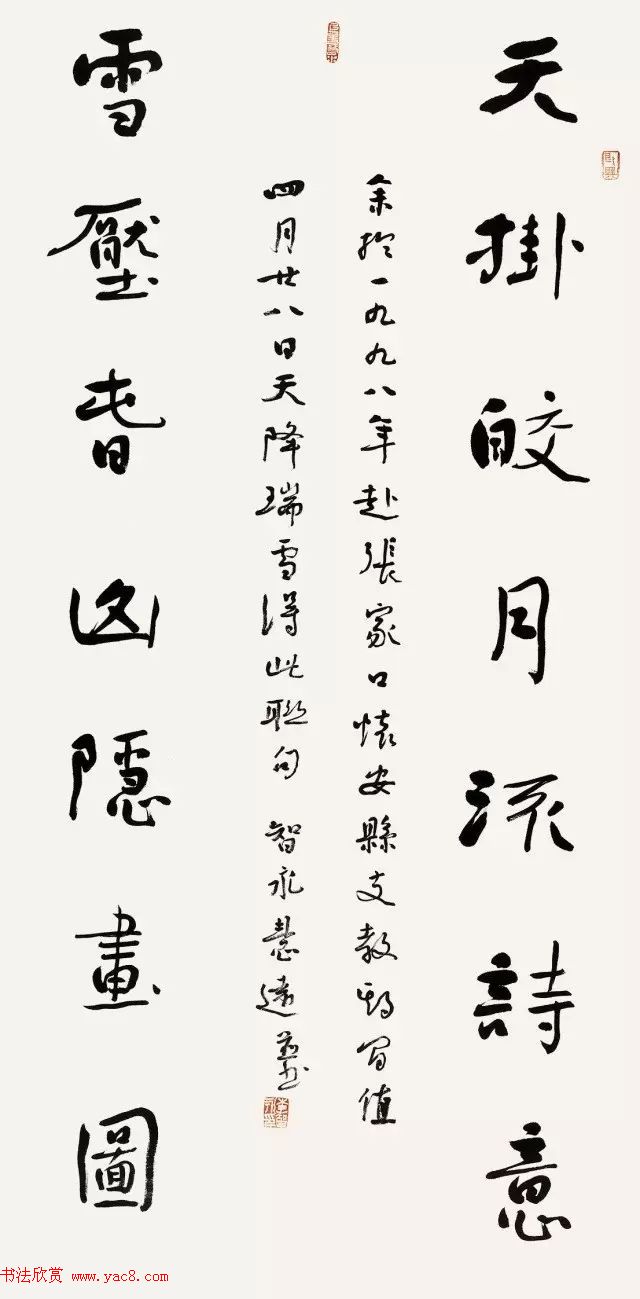 天掛皎月流詩意
余於一九九八年赴張家口懷安縣支教期間值
四月廿八日天降瑞雪得此聯句 智永慧遠并
雪壓春山隱畫圖
书法欣赏 www.yac8.com